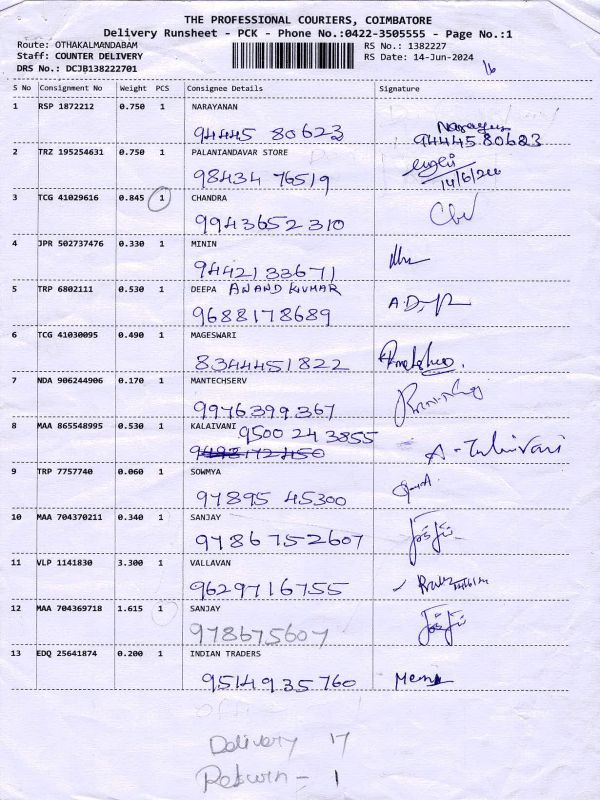 THE PROFESSIONAL COURIERS, COIMBATORE
Delivery Runsheet - PCK - Phone No.:0422-3505555 - Page No.:1
Route: OTHAKALMANDABAM RS No.: 1382227
Staff: COUNTER DELIVERY RS Date: 14-Jun-2024
DRS No.: DCJB138222701
16
S No Consignment No Weight PCS Consignee Details Signature
1 RSP 1872212 0.750 1 NARAYANAN
94445 80623 9444580623
2 TRZ 195254631 0.750 1 PALANIANDAVAR STORE
98434 76519 14/6/24
3 TCG 41029616 0.845 1 CHANDRA
9943652310
4 JPR 502737476 0.330 1 MININ
9442133671
5 TRP 6802111 0.530 1 DEEPA ANAND KUMAR
9688178689
6 TCG 41030095 0.490 1 MAGESWARI
8344451822
7 NDA 906244906 0.170 1 MANTECHSERV
9976399367
8 MAA 865548995 0.530 1 KALAIVANI 9500 24 3855
9 TRP 7757740 0.060 1 SOWMYA
97895 45300
10 MAA 704370211 0.340 1 SANJAY
9786752607
11 VLP 1141830 3.300 1 VALLAVAN
9629716755
12 MAA 704369718 1.615 1 SANJAY
978675607
13 EDQ 25641874 0.200 1 INDIAN TRADERS
9514935760
Delivery 17
Return - 1